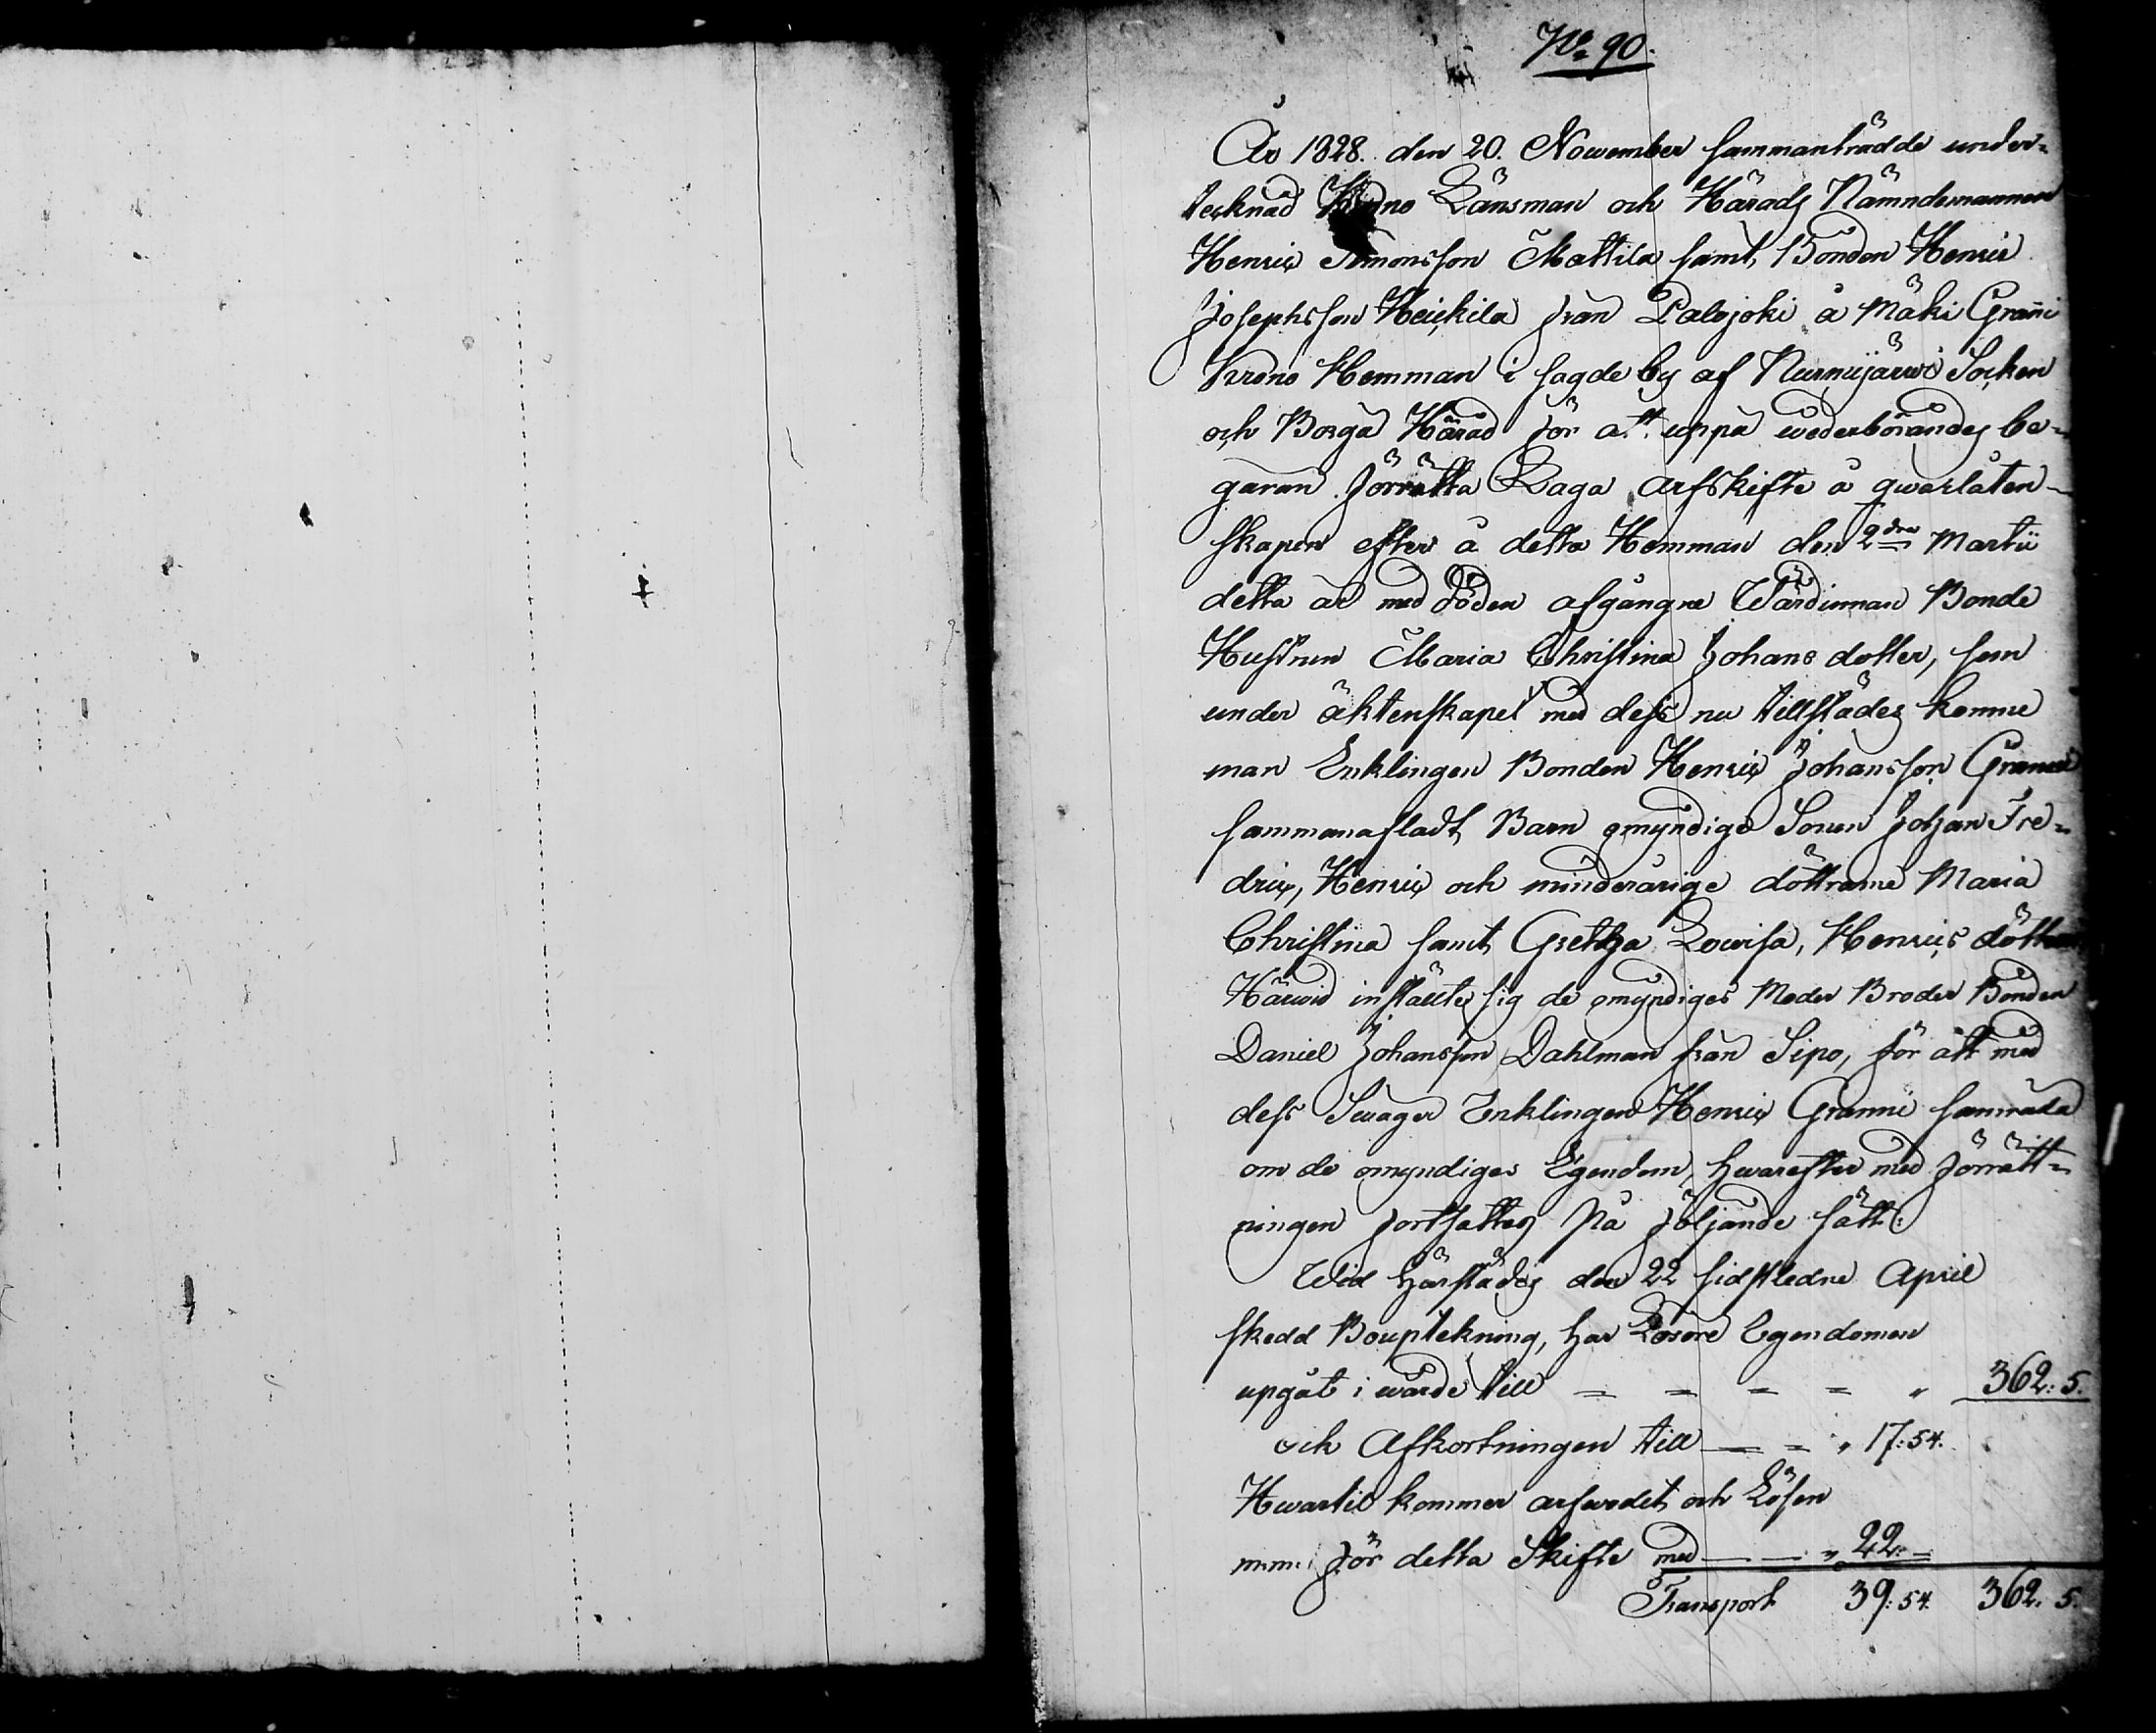 No 90.
År 1828. den 20. November sammanträdde under-
tecknad Krono Länsman och Härads Nämndemannen
Henric Simonsson Mattila samt Bonden Henric
Josephsson Heickilä från Palojoki å Mäki Granni
Krono Hemman i sagde by af Nurmijärwi Socken
och Borgå Härad för att uppå wederbörandes be-
gäran förrätta Laga arfskifte å qwarlåten-
skapen efter å detta Hemman den 2dra Martii
detta år med döden afgångne Wärdinnan Bonde
Hustrun Maria Christina Johans dotter, som
under äktenskapet med dess nu tillstädes komne
man Enklingen Bonden Henric Johansson Granni
sammanaflat Barn omyndige Sönen Johan Fre-
dric, Henric och minderårige döttrarne Maria
Christina samt Gretha Lowisa, Henrics döttrar
Härwid inställte sig de omyndiges Moder Broder Bonden
Daniel Johansson Dahlman från Sipo, för att med
dess Swåger Enklingen Henric Granni samråda
om de omyndiges Egendom, hwarefter med förrätt-
ningen fortsattes på följande sätt:
Wid härstädes den 22 sidstledne April
skedd Bouptekning, har Lösöre Egendomen
upgåt i wärde till = = = = " 362: 5.
och Afkortningen till — = " 17: 54.
Hwartil kommer arfwodet och Lösen
m: m: för detta Skifte med — — " 22: =
Transport 39: 54. 362. 5.